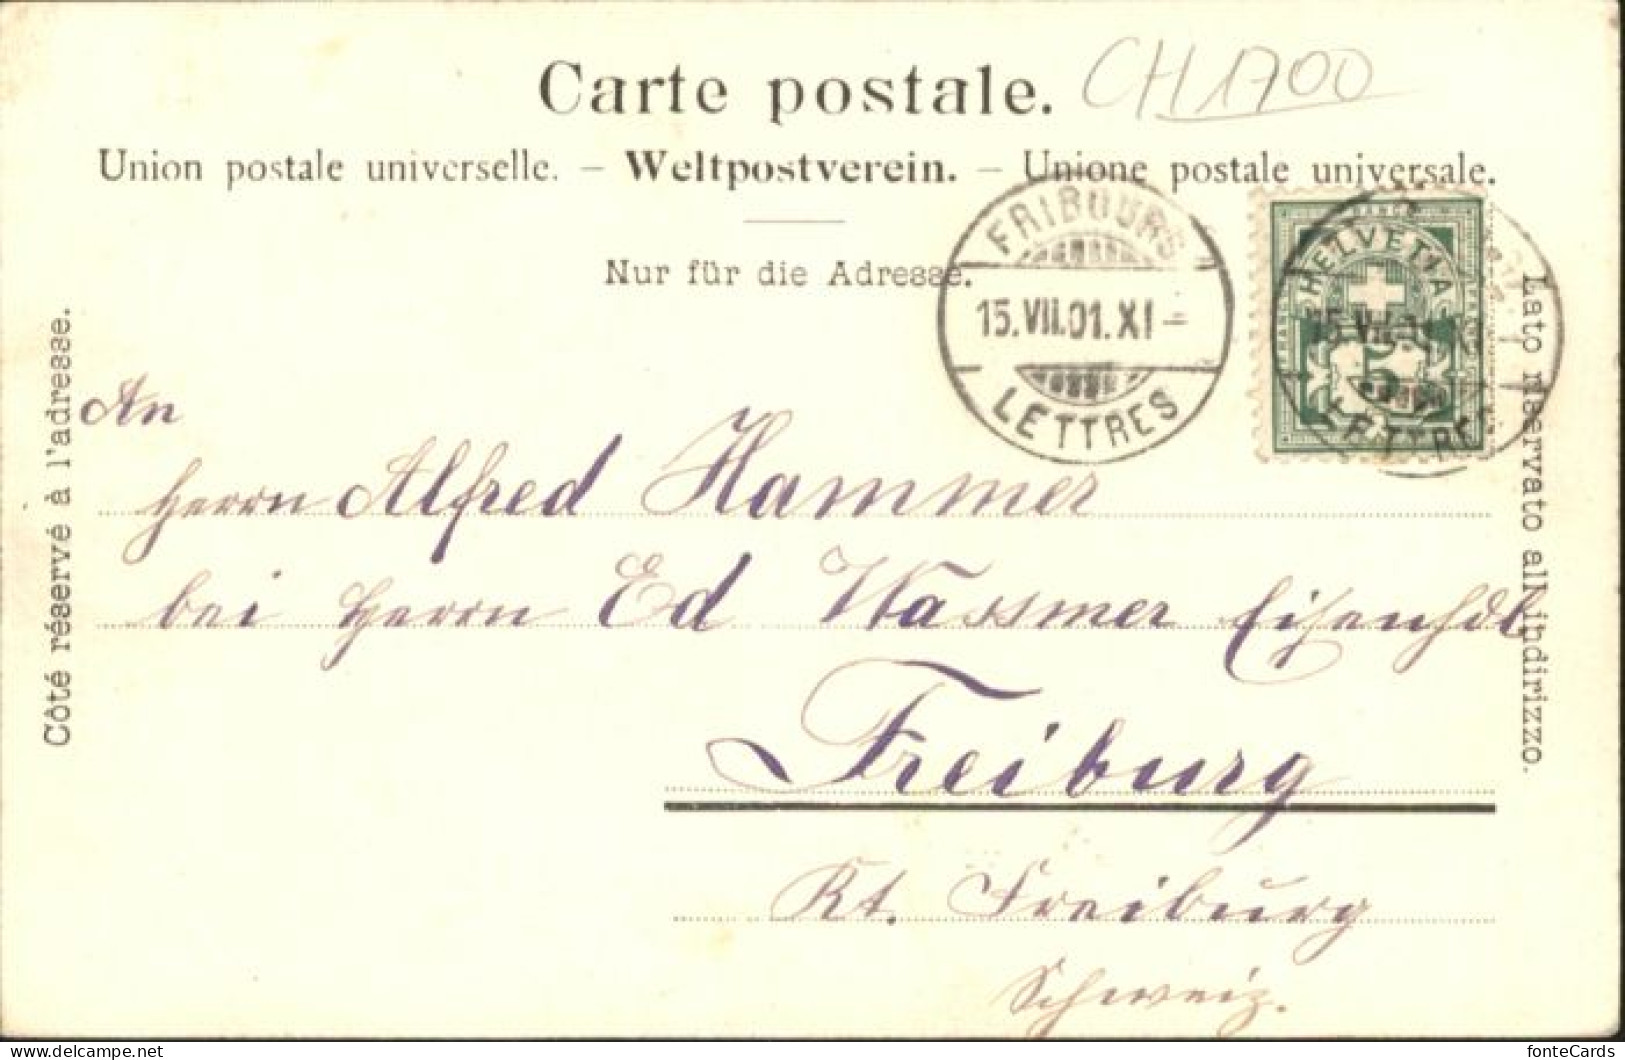 Carte postale. CH 1700
Union postale universelle. – Weltpostverein. – Unione postale universale.
Nur für die Adresse.
Côté réservé à l'adresse.
Lato riservato all'indirizzo.
FRIBOURG
15.VII.01.XI –
LETTRES
FRANCO
HELVETIA
15.VII.01.XI
5
LETTRES
An
Herrn Alfred Hammer
bei Herrn Ed Wassmer Eisenhdl.
Freiburg
Kt. Freiburg
Schweiz.
fonteCards